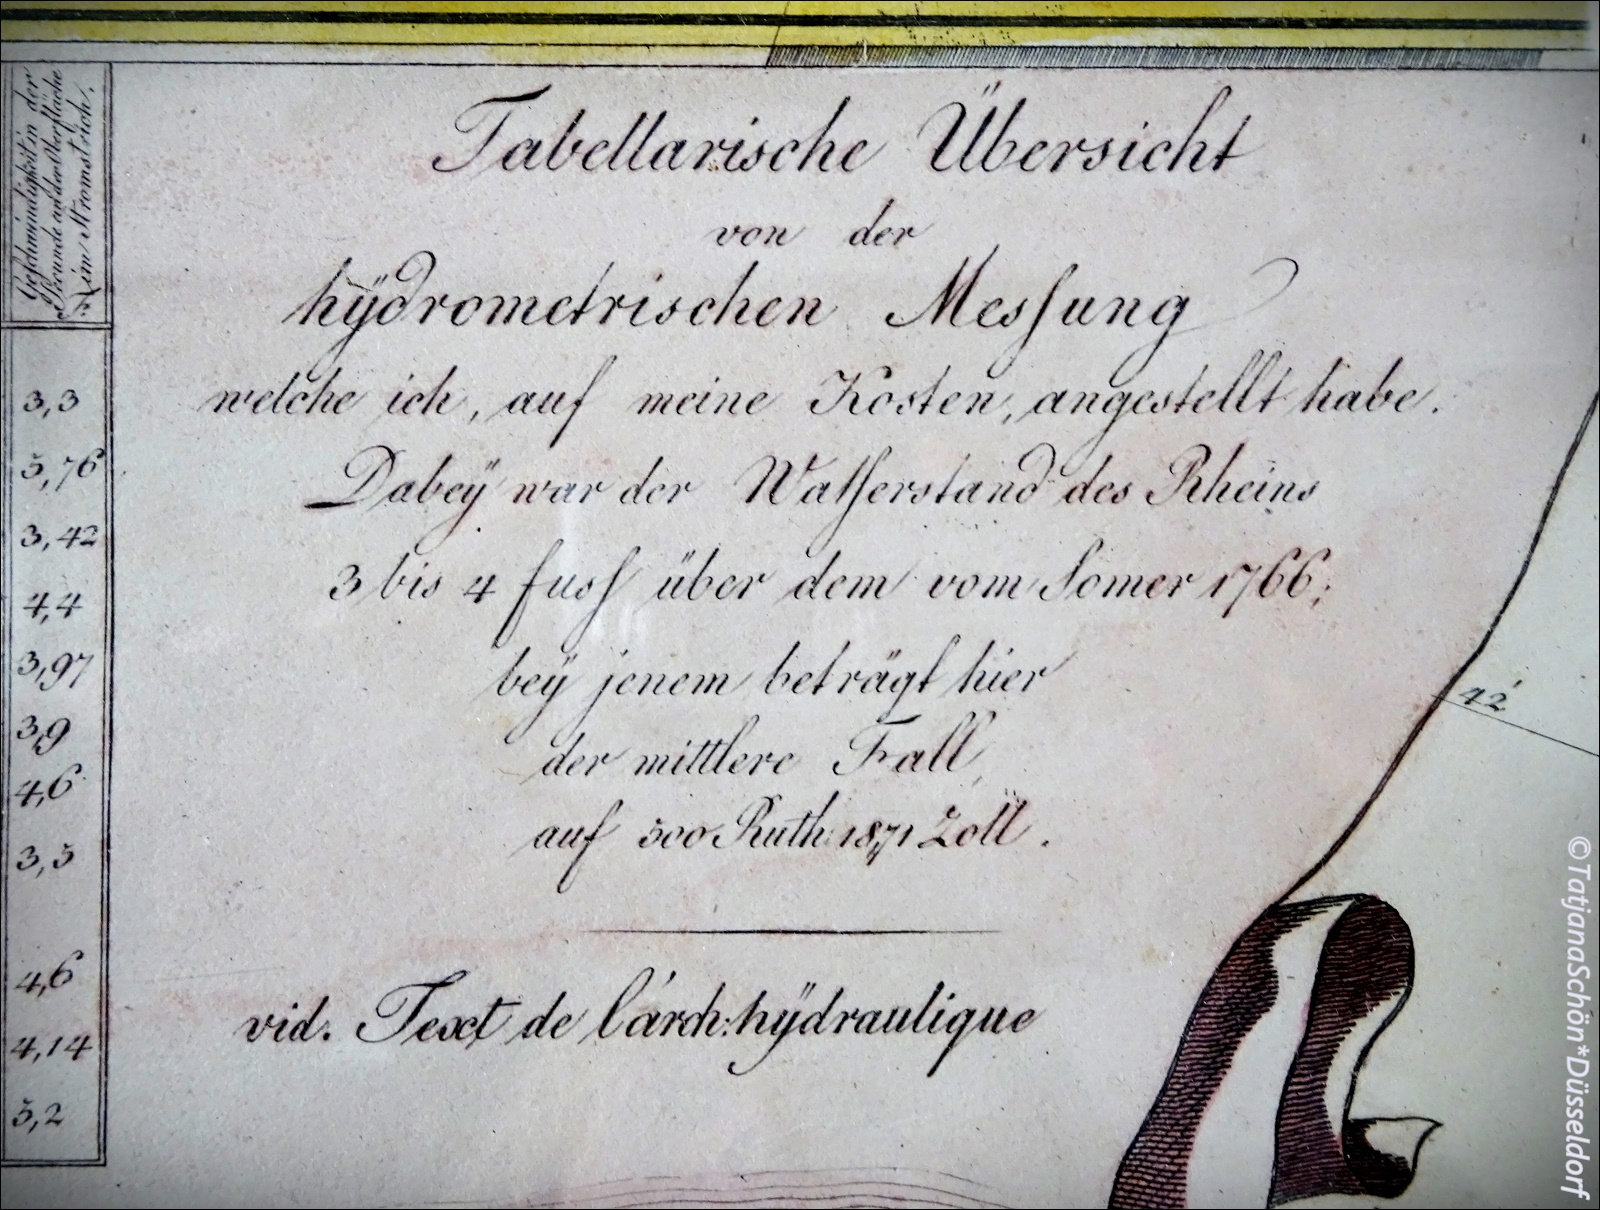 Geschwindigkeit in der
Secunde an der Oberfläche
im Stromstrich.
3,3
5,76
3,42
4,4
3,97
3,9
4,6
3,5
4,6
4,14
5,2
Tabellarische Übersicht
von der
hÿdrometrischen Messung
welche ich, auf meine Kosten, angestellt habe.
Dabeÿ war der Wasserstand des Rheins
3 bis 4 fuss über dem vom Somer 1766;
beÿ jenem beträgt hier
der mittlere Fall,
auf 500 Ruth: 18,71 Zoll.
vid. Text de l'arch: hÿdraulique
42'
©TatjanaSchön*Düsseldorf